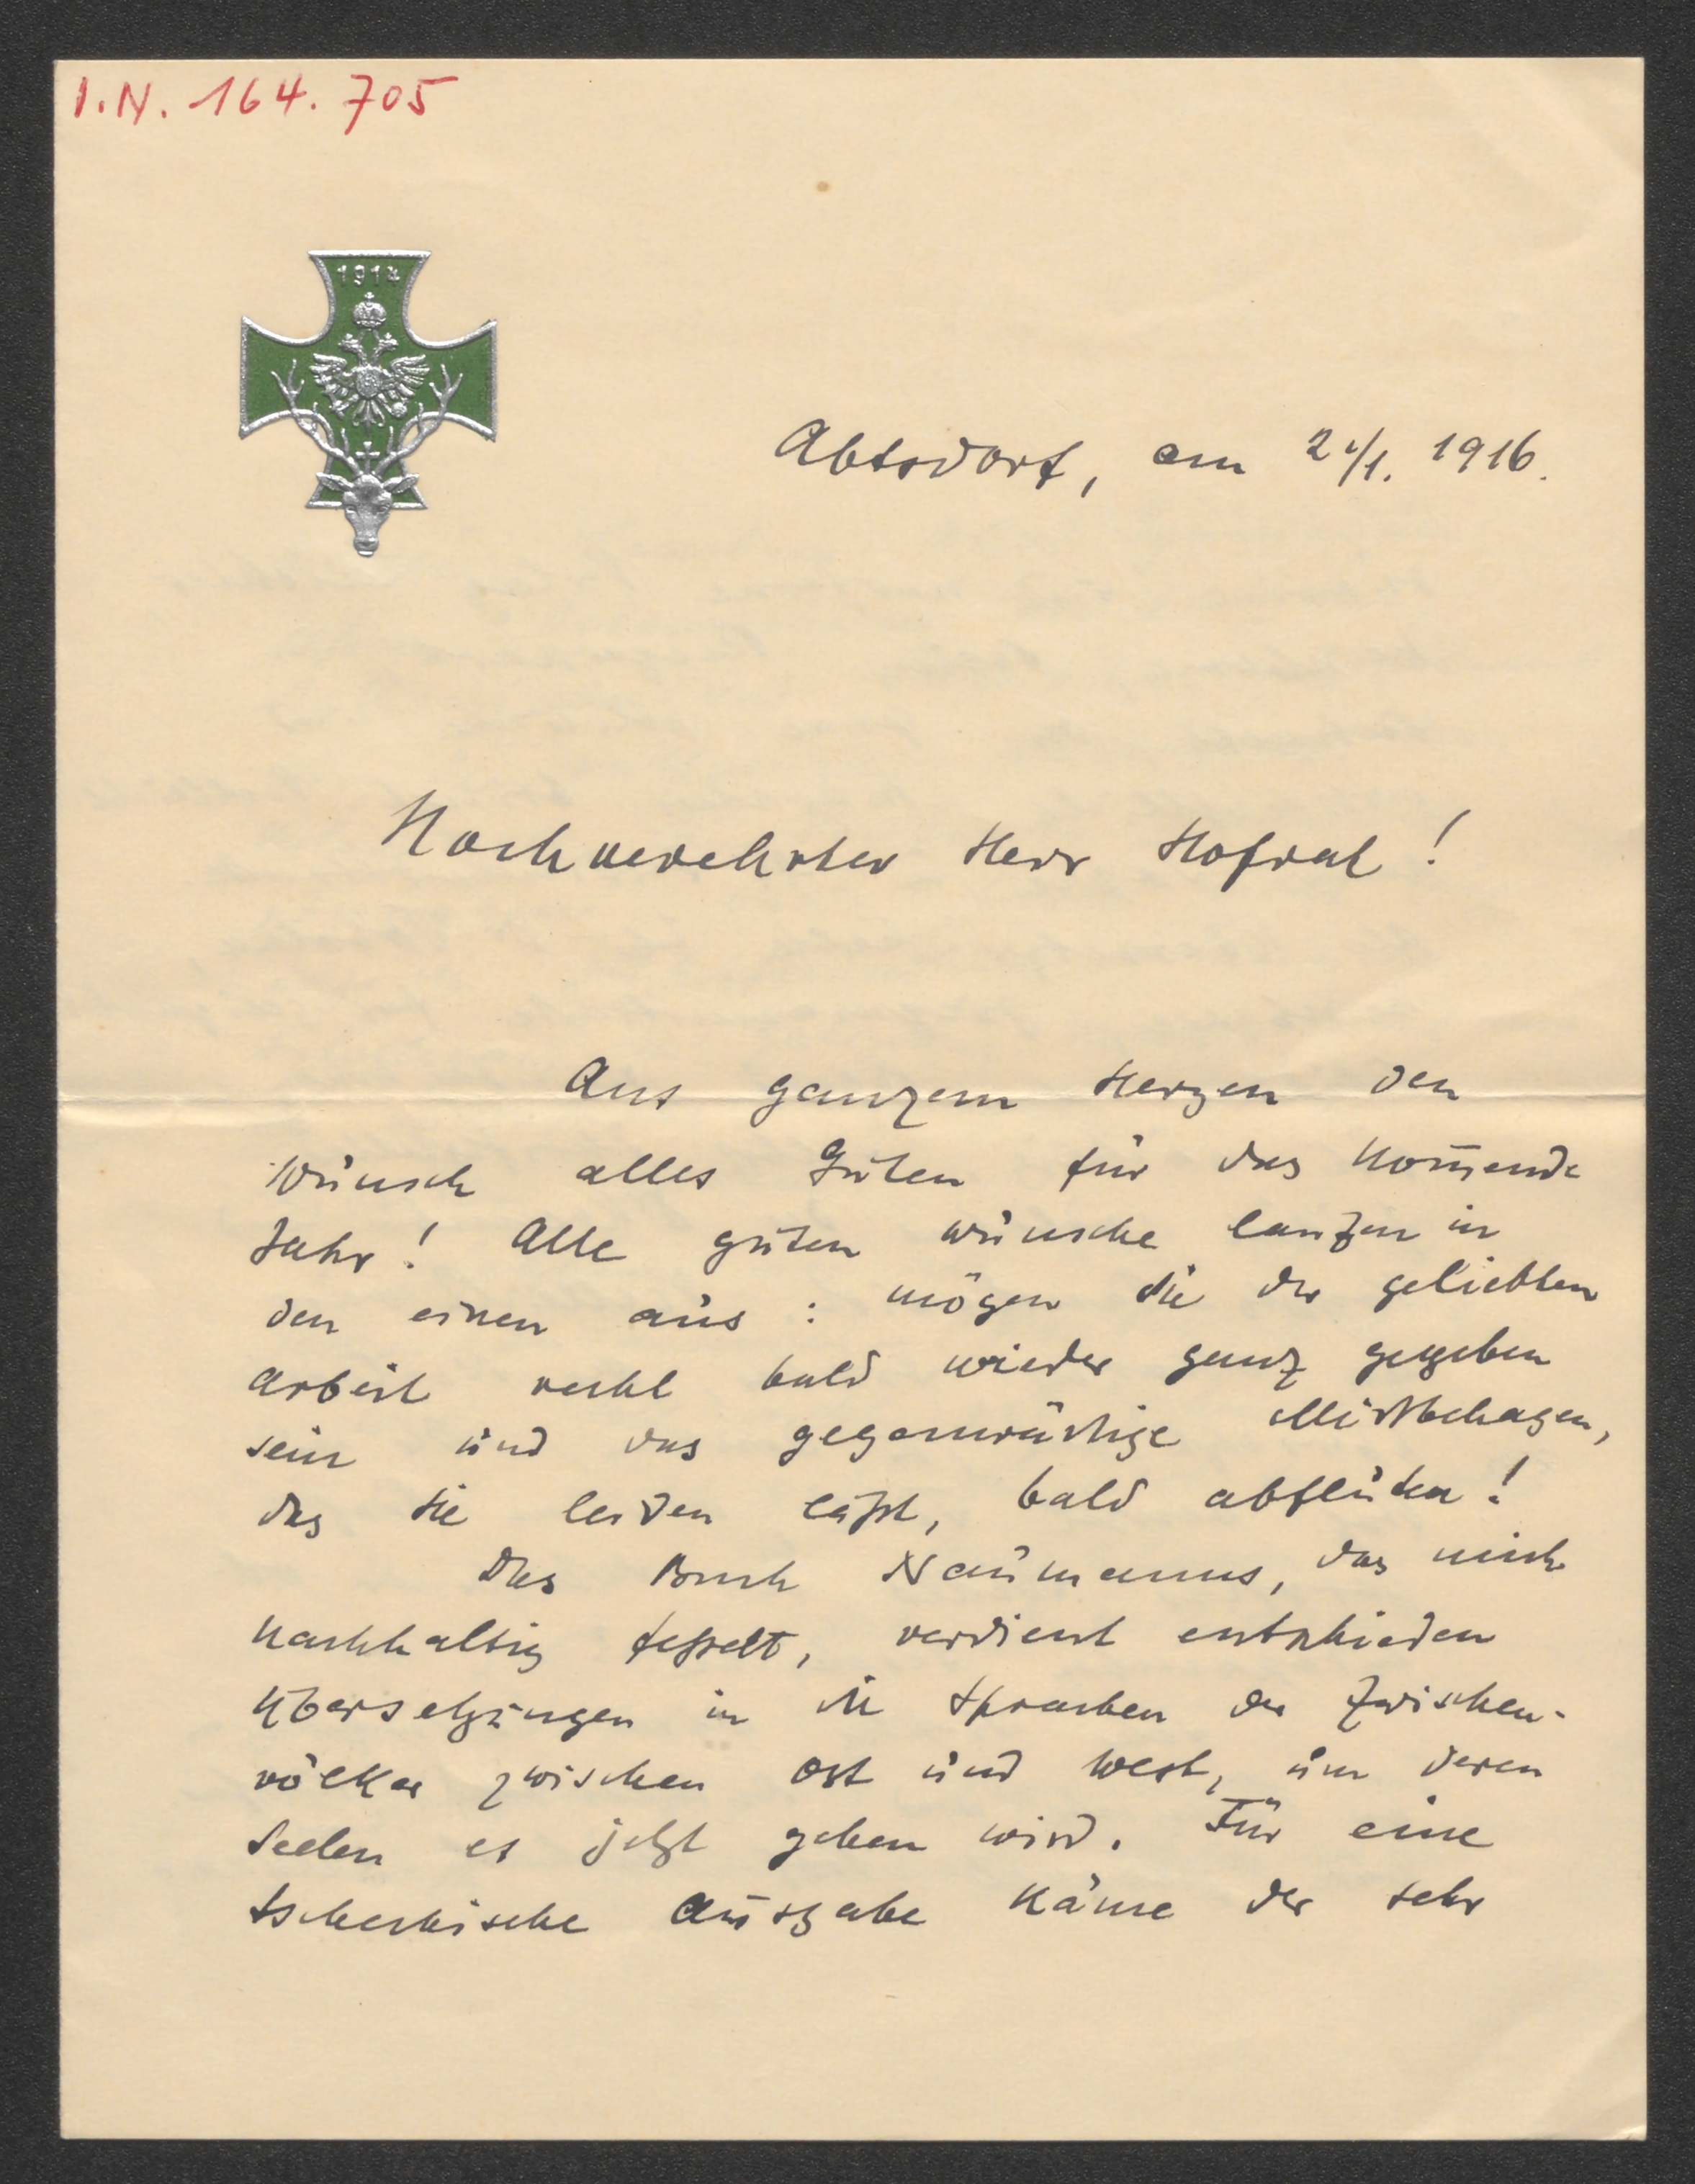 I.N. 164.705
1914
Abtsdorf, am 2/1. 1916.
Hochverehrter Herr Hofrat!
Aus ganzem Herzen den
Wunsch alles Guten für das kom̅ende
Jahr! Alle guten Wünsche laufen in
den einen aus: mögen Sie der geliebten
Arbeit recht bald wieder ganz gegeben
sein und das gegenwärtige Mißbehagen,
das Sie leiden läßt, bald abflüten!
Das Buch Naumanns, das mich
nachhaltig fesselt, verdient entschieden
Übersetzungen in die Sprachen der Zwischen-
völker zwischen Ost und West, um deren
Seelen es jetzt gehen wird. Für eine
tschechische Ausgabe käme der sehr